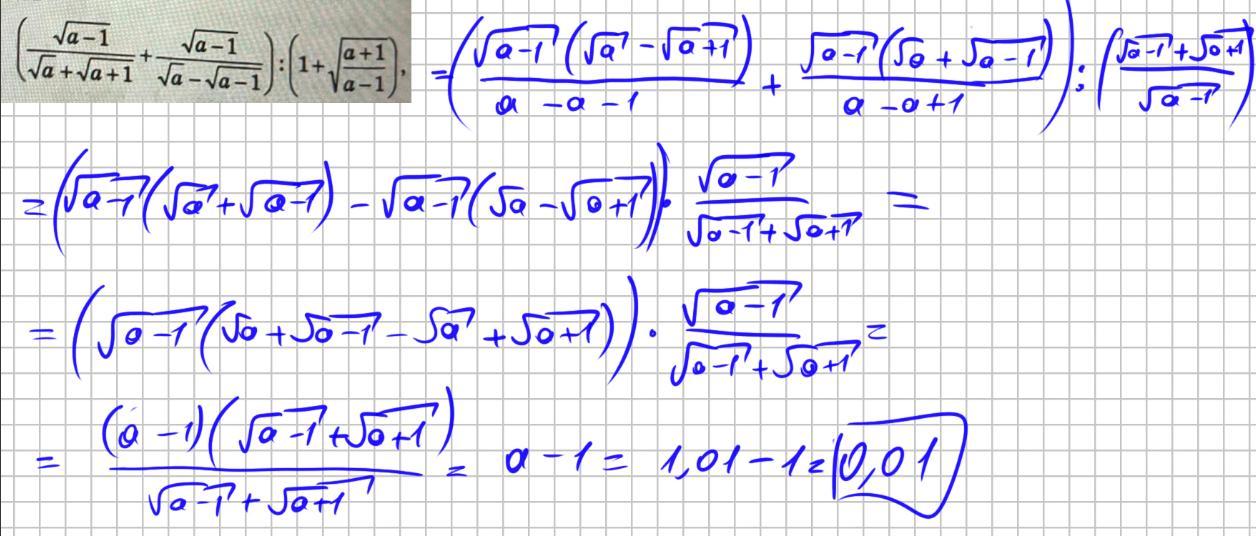 (√(a−1)/(√a+√(a+1)) + √(a−1)/(√a−√(a−1))) : (1+√((a+1)/(a−1))), = (√(a−1)(√a−√(a+1))/(a−a−1) + √(a−1)(√a+√(a−1))/(a−a+1)) : ((√(a−1)+√(a+1))/√(a−1))
= (√(a−1)(√a+√(a−1)) − √(a−1)(√a−√(a+1))) · √(a−1)/(√(a−1)+√(a+1)) =
= (√(a−1)(√a+√(a−1)−√a+√(a+1))) · √(a−1)/(√(a−1)+√(a+1)) =
= (a−1)(√(a−1)+√(a+1))/(√(a−1)+√(a+1)) = a−1 = 1,01−1 = 0,01